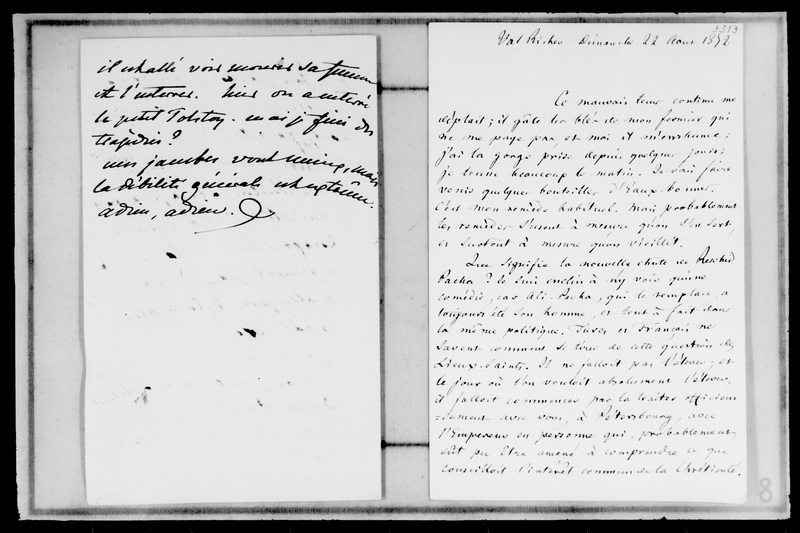 il est allé voir mourir sa femme
et l'enterrer. hier on a enterré
le petit Tolstoy. mais je finis des
tragédies?
mes jambes vont mieux, mais
la débilité générale est extrême.
adieu, adieu.
3213
Val Richer - Dimanche 22 Août 1852
Ce mauvais tems continu me
déplait ; il gâte les blés de mon fermier qui
ne me paye pas, et moi il m'enrhume ;
j'ai la gorge prise depuis quelques jours ;
je tousse beaucoup le matin. Je vais faire
venir quelques bouteilles d'Eaux-bonnes.
C'est mon remède habituel. Mais probablement
les remèdes s'usent à mesure qu'on s'en sert,
et surtout à mesure qu'on vieillit.
Que signifie la nouvelle chute de Reschid
Pacha ? Je suis enclin à n'y voir qu'une
comédie, car Ali-Pacha, qui le remplace, a
toujours été son homme, et tout à fait dans
la même politique. Turcs et Français ne
savent comment se tirer de cette question des
Lieux-Saints. Il ne falloit pas l'élever ; et
le jour où l'on vouloit absolument l'élever,
il falloit commencer par la traiter officieu
=sement avec vous, à Pétersbourg, avec
l'Empereur en personne qui, probablement,
eût pu être amené à comprendre ce que
conseilloit l'intérêt commun de la Chrétienté.
8